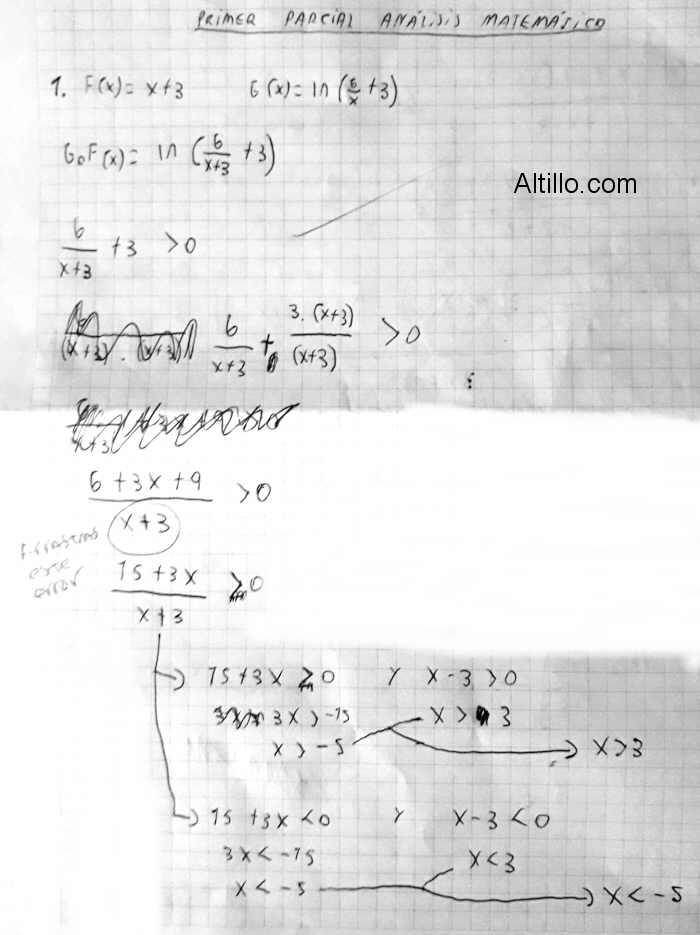 PRIMER PARCIAL ANÁLISIS MATEMÁTICO
1. F(x) = x+3 G(x) = ln (6/x + 3)
GoF(x) = ln (6/(x+3) + 3)
Altillo.com
6/(x+3) + 3 > 0
6/(x+3) + 3.(x+3)/(x+3) > 0
(6+3x+9)/(x+3) > 0
Arrastras
este
error
(15+3x)/(x+3) > 0
15+3x > 0 Y x-3 > 0
3x > -15 x > 3
x > -5 x > 3
15+3x < 0 Y x-3 < 0
3x < -15 x < 3
x < -5 x < -5